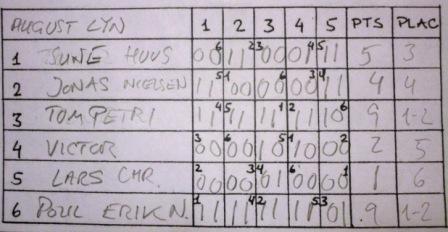 AUGUST LYN 1 2 3 4 5 PTS PLAC
1 SUNE HUUS 00 6 11 2 3 00 01 4 5 11 5 3
2 JONAS NIELSEN 11 5 1 00 00 6 00 3 4 11 4 4
3 TOM PETRI 11 4 5 11 11 1 2 11 10 6 9 1-2
4 VICTOR 3 00 6 00 10 5 1 10 00 2 2 5
5 LARS CHR. 2 00 00 3 4 01 6 00 00 1 1 6
6 POUL ERIK N. 1 11 11 4 2 11 11 5 3 01 9 1-2